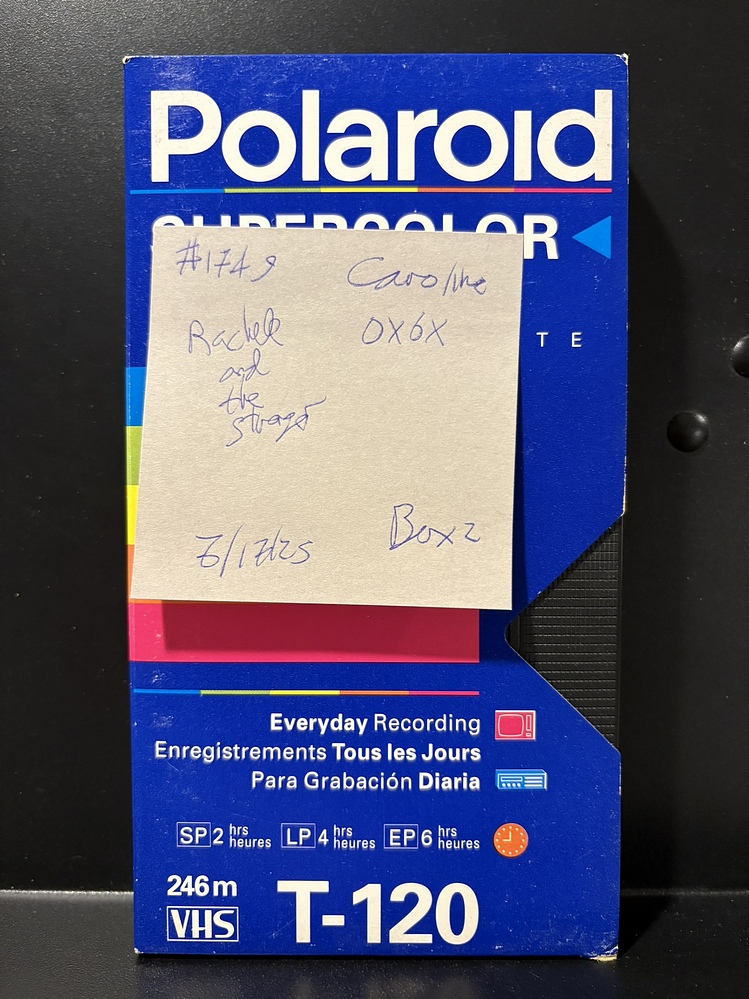 Polaroid
SUPERCOLOR
T E
#1749 Caroline
Rachel 0X6X
and
the
Box 2
Everyday Recording
Enregistrements Tous les Jours
Para Grabación Diaria
SP 2 hrs heures LP 4 hrs heures EP 6 hrs heures
246 m
VHS T-120